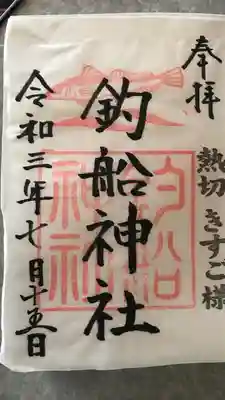 奉拝
熱切きすご様
釣船神社
釣船神社
令和三年七月十五日